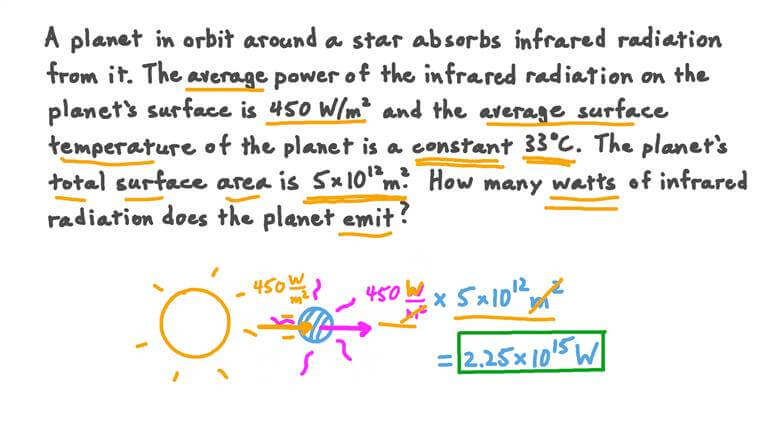 A planet in orbit around a star absorbs infrared radiation
from it. The average power of the infrared radiation on the
planet's surface is 450 W/m² and the average surface
temperature of the planet is a constant 33°C. The planet's
total surface area is 5×10¹² m². How many watts of infrared
radiation does the planet emit?
450 W/m²
450 W/m² × 5×10¹² m²
= 2.25×10¹⁵ W